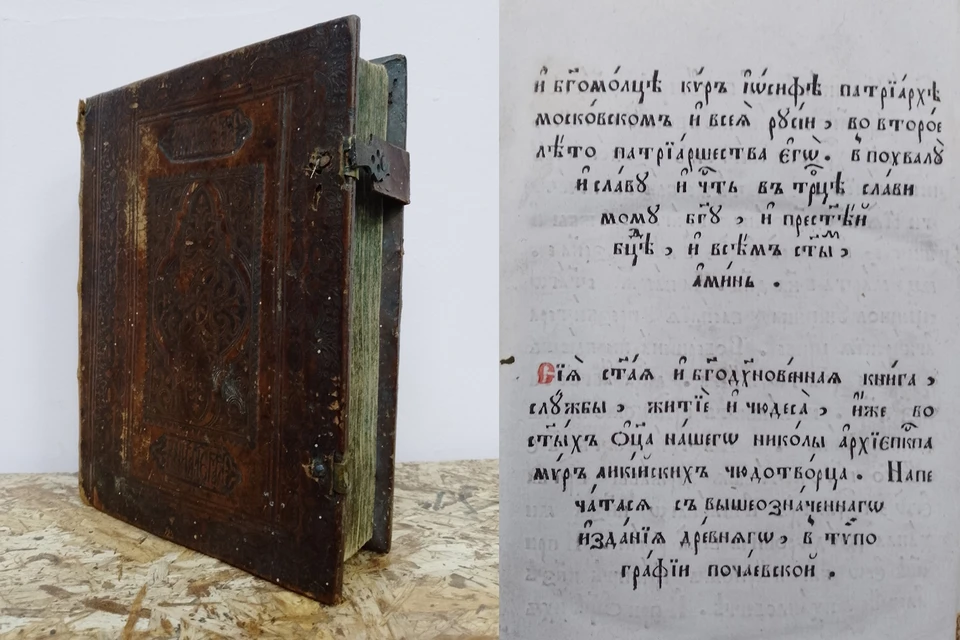 и҆ бг҃омо́лцѣ ку́ръ і҆ѡ́сифѣ патрїа́рхѣ
моско́вскомъ и҆ всеѧ̀ рѹсі́и , во второ́е
лѣ́то патрїа́ршества є҆гѡ̀ . в̾ похвалꙋ̀
и҆ сла́вꙋ и҆ че́ть въ трⷪ҇цѣ сла́ви
момꙋ бг҃ꙋ , и҆ прест҃ѣ́й
бцⷣѣ , и҆ всѣ̑мъ ст҃ыⷨ ,
а҆ми́нь .
Сїѧ̀ ст҃аѧ и҆ бг҃одх҃нове́ннаѧ кни́га ,
слꙋ́жбы , житїѐ и҆ чюдеса̀ , и҆́же во
ст҃ы́хъ ѻ҆ц҃а на́шегѡ нико́лы а҆рхїепⷭ҇кпа
мѵ́ръ ликі́йскихъ чюдотво́рца . Напе
ча́тасѧ съ вышеозна́ченнагѡ
и҆зда́нїѧ дре́внѧгѡ , в̾ тѵ́по
гра́фїи поча́евской .